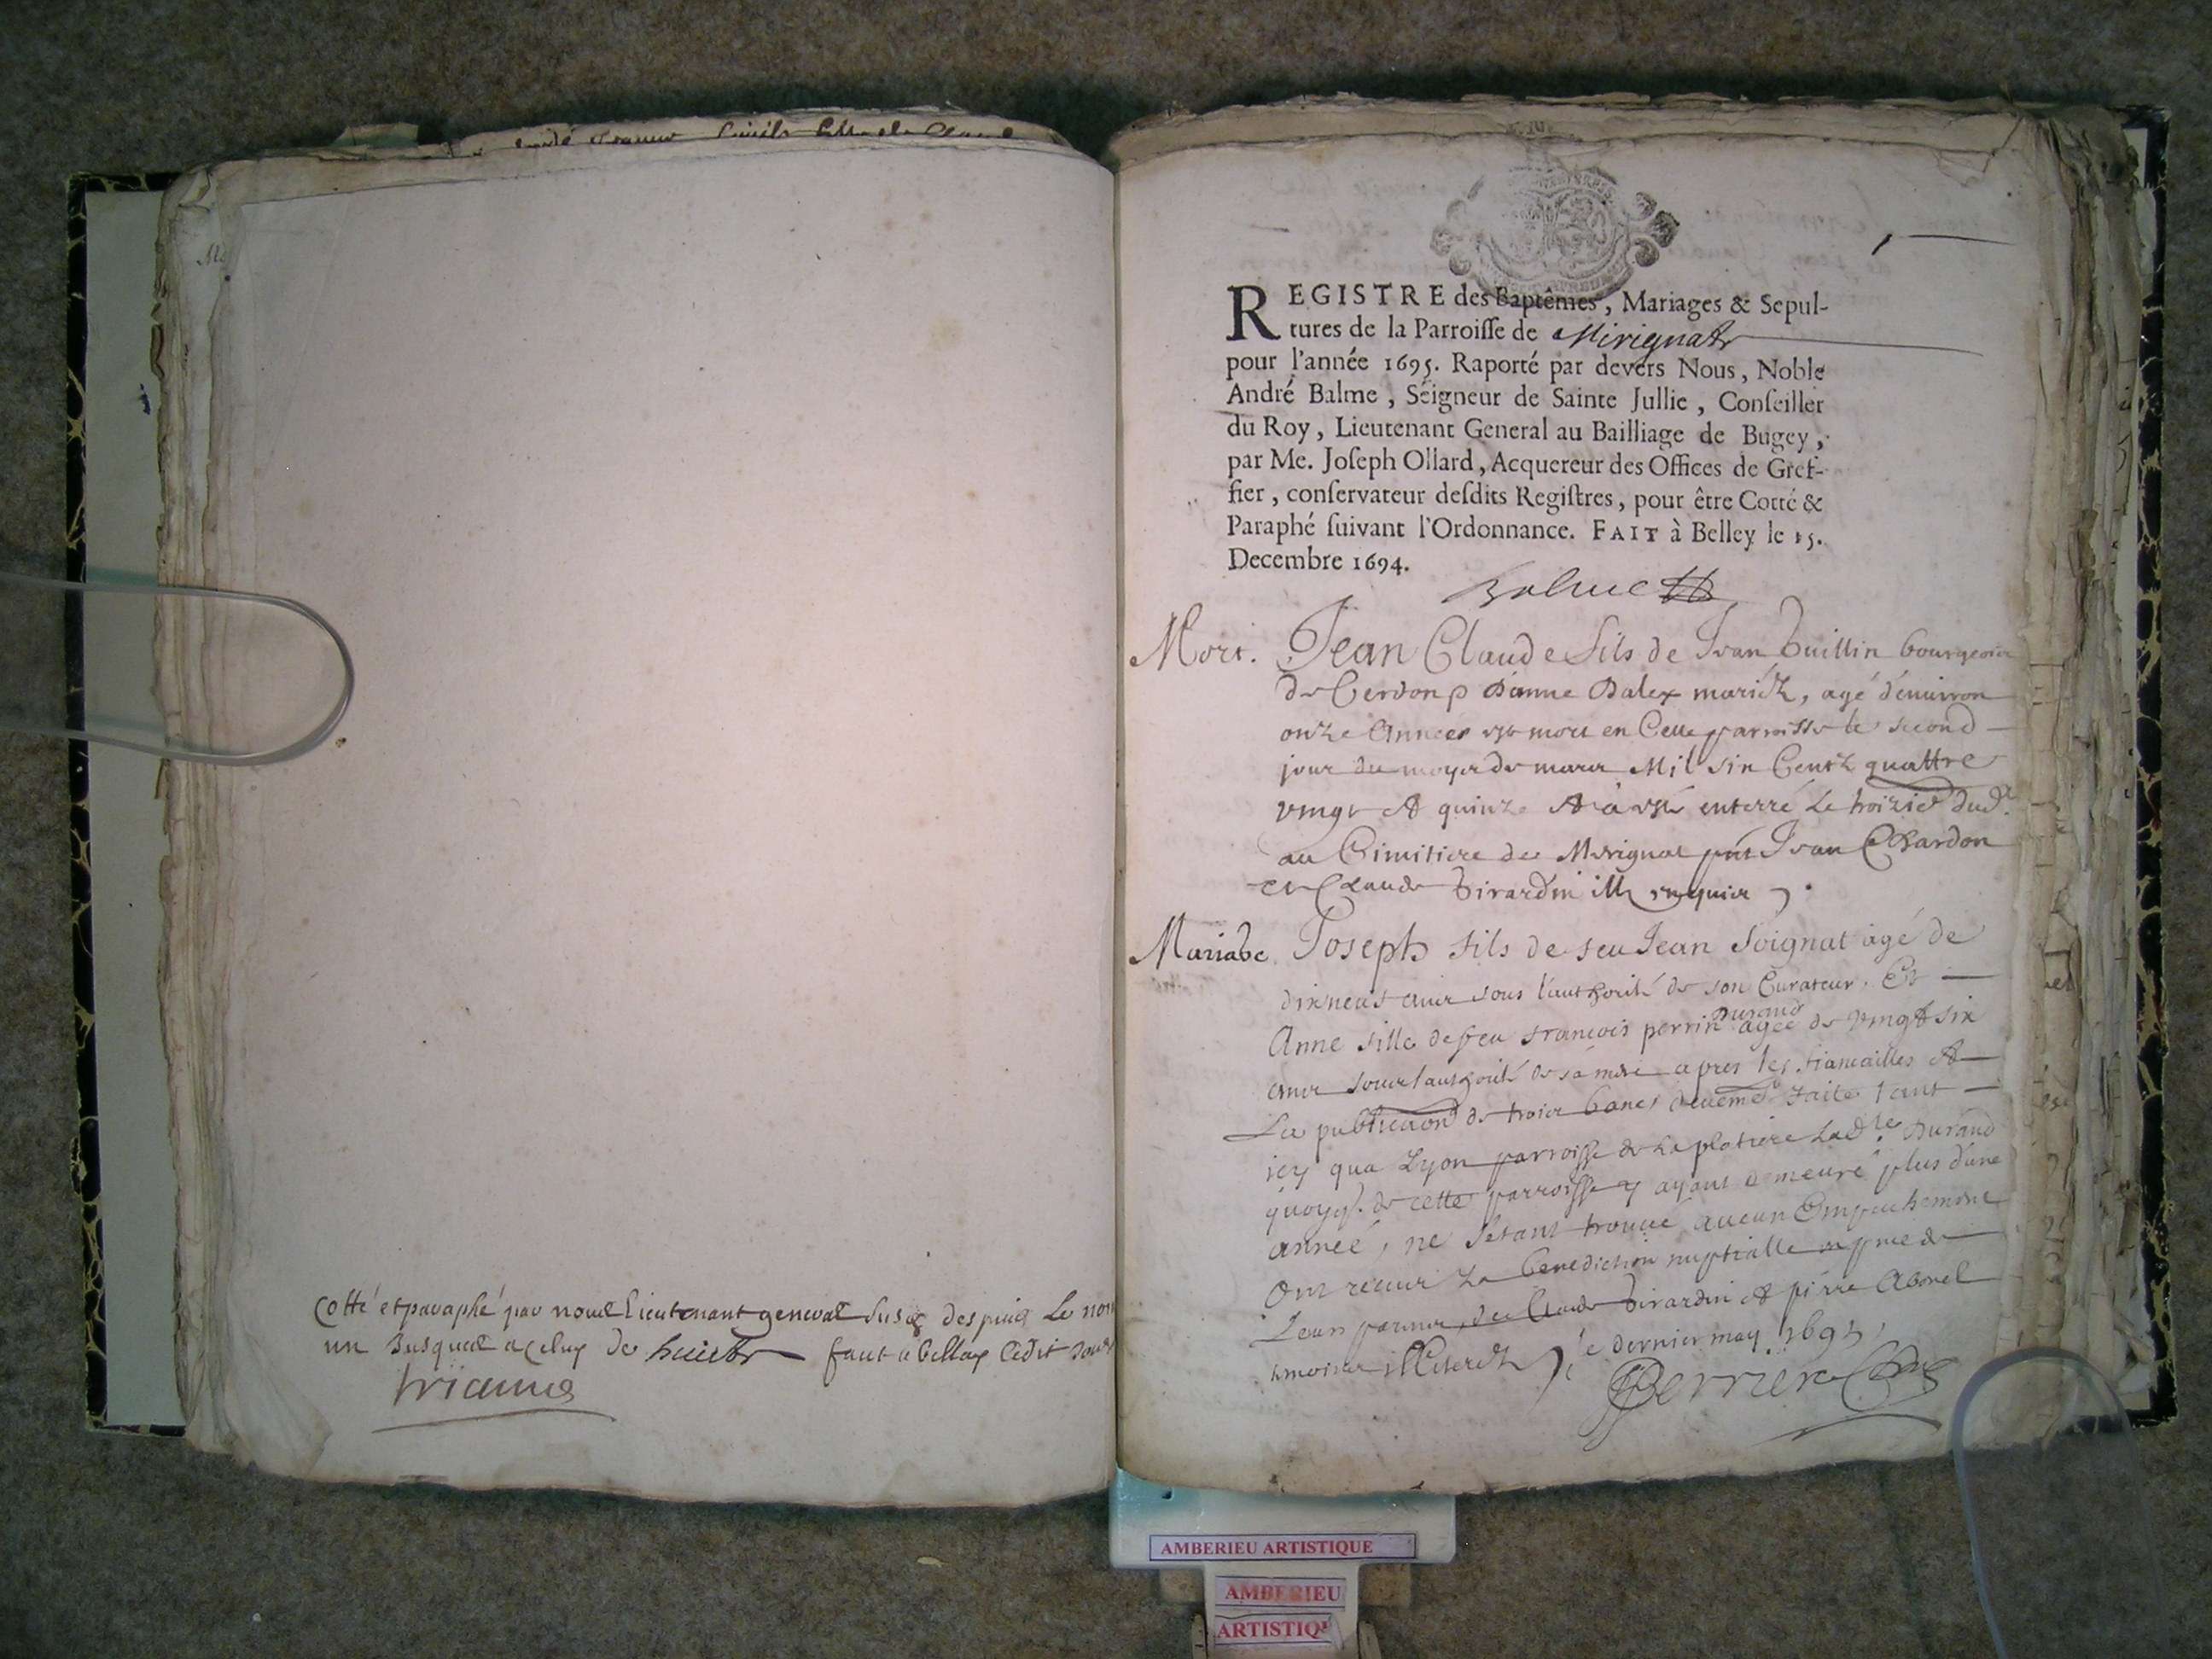 Cotté et paraphé par nous Lieutenant general susd despuis Le nom
un Jusques a celuy de huict fait a Belley ledit Jour
REGISTRE des Baptêmes, Mariages & Sepul-
tures de la Parroisse de Mirignat
pour l'année 1695. Raporté par devers Nous, Noble
André Balme, Seigneur de Sainte Jullie, Conseiller
du Roy, Lieutenant General au Bailliage de Bugey,
par Me. Joseph Ollard, Acquereur des Offices de Gref-
fier, conservateur desdits Registres, pour être Cotté &
Paraphé suivant l'Ordonnance. FAIT à Belley le 15.
Decembre 1694.
Balme
Mort. Jean Claude fils de Jean Guillin bourgeois
de Cerdon & d'anne Dalex mariéz, agé d'enuiron
onze Années est mort en Cette parroisse le second
jour du moys de mars Mil six Centz quattre
vingt et quinze et à esté enterré Le troizie dud.
au Cimitiere de Merignat pnt Jean Chardon
et Claude Girardin ill enquis
Mariage Joseph fils de feu Jean Soignat agé de
dixneuf ans sous l'authorité de son Curateur, Et
Anne fille de feu francois perrin Durand agée de vingt six
ans sous l'authorité de sa mere apres les fiancailles et
La publicaon de trois bancs deuemt faite tant
icy qua Lyon parroisse de La platiere Ladte Durand
quoyq. de cette parroisse y ayant demeuré plus d'une
année, ne s'etant trouué aucun Empechement
Ont receus La benediction nuptialle en pnce de
Leurs parens, de Claude Girardin et pierre Abonel
temoins illiterez le dernier may 1695
Perrier
AMBERIEU ARTISTIQUE
AMBERIEU
ARTISTIQU